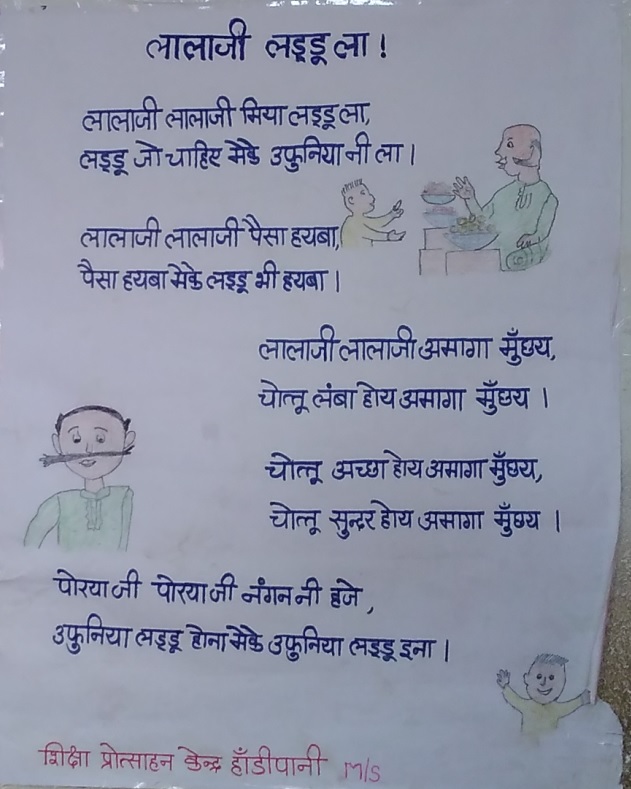 लालाजी लड्डू ला !
लालाजी लालाजी मिया लड्डू ला,
लड्डू जो चाहिए मेकै उफुनिया नी ला ।
लालाजी लालाजी पैसा हयबा,
पैसा हयबा मेकै लड्डू भी हयबा ।
लालाजी लालाजी अमागा मुँछय,
चोत्नू लंबा होय अमागा मुँछय ।
चोत्नू अच्छा होय अमागा मुँछय,
चोत्नू सुन्दर होय अमागा मुँछय ।
पोरया जी पोरया जी नंगन नी हजे,
उफुनिया लड्डू होना मेकै उफुनिया लड्डू इना ।
शिक्षा प्रोत्साहन केन्द्र हाँडीपानी M/S